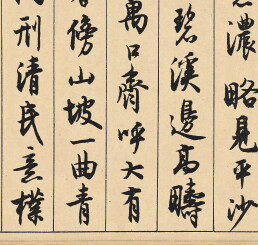 濃略見平沙
碧溪邊高疇
萬口齊呼大有
傍山坡一曲青
刑清民意樸